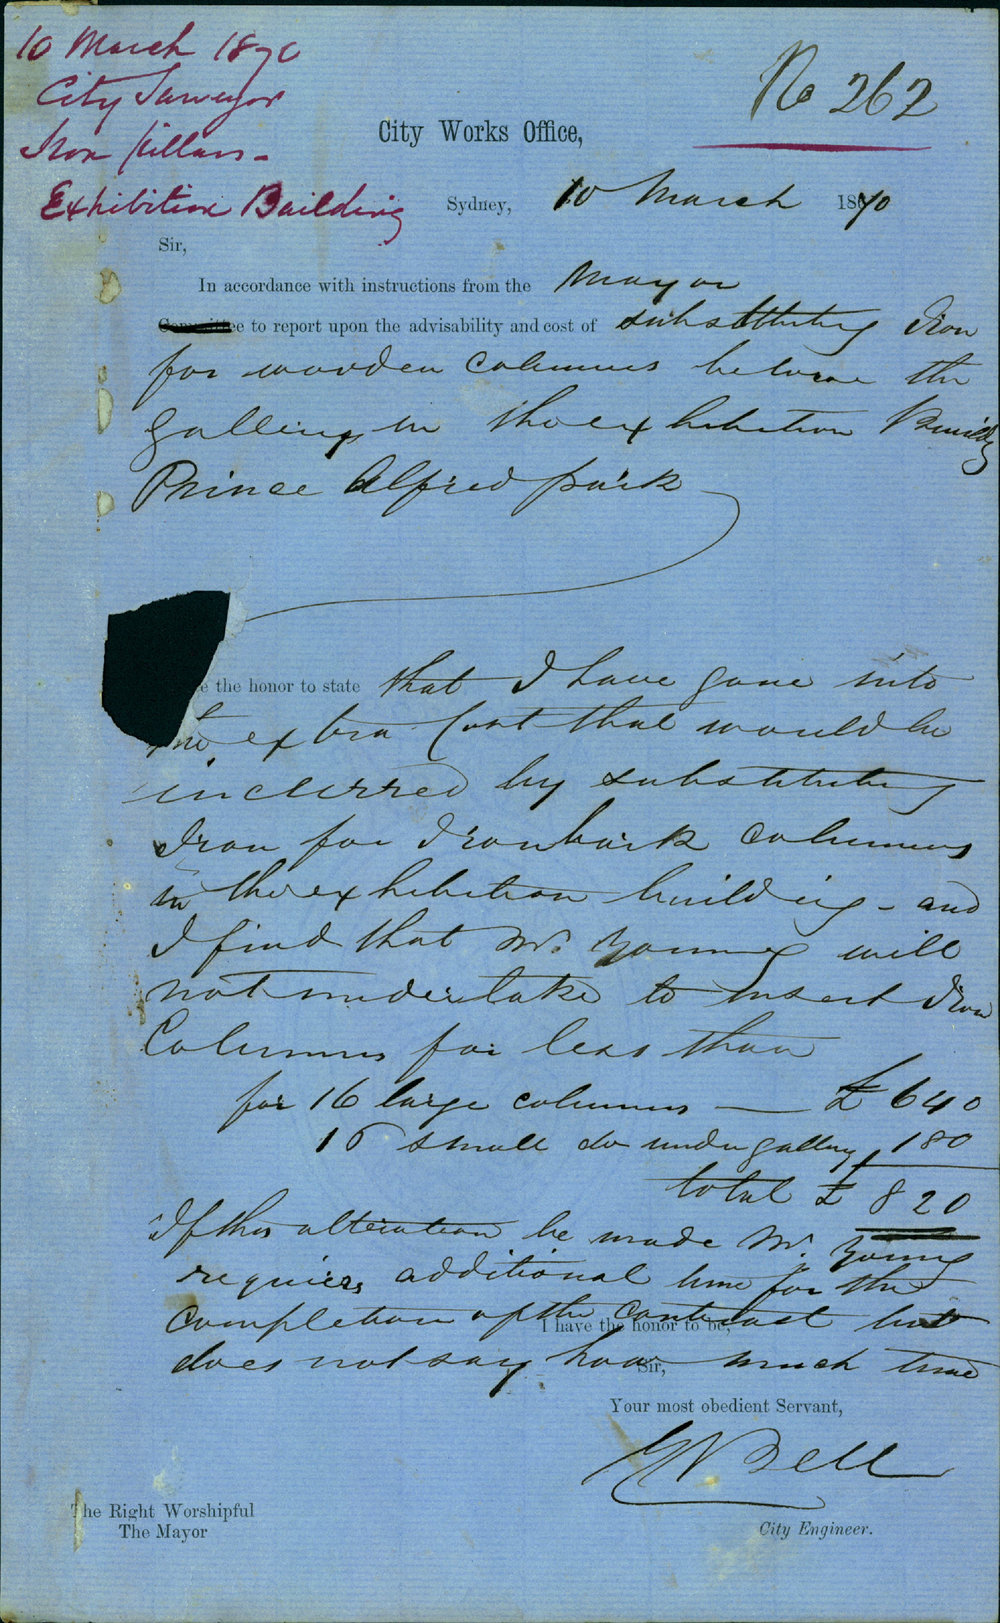 10 March 1870
City Surveyor
Iron pillars -
Exhibition Building
No 262
City Works Office,
Sydney, 10 March 1870
Sir,
In accordance with instructions from the Mayor
Committee to report upon the advisability and cost of substituting Iron
for wooden columns below the
gallery in the exhibition Building
Prince Alfred park
e the honor to state that I have gone into
the extra cost that would be
incurred by substituting
Iron for Ironbark columns
in the exhibition building - and
I find that Mr. Young will
not undertake to insert Iron
Columns for less than
for 16 large columns — £ 640
small do under gallery 180
total £ 820
If this alteration be made Mr. Young
requires additional time for the
completion of the contract but
I have the honor to be,
does not say how much time
Sir,
Your most obedient Servant,
Bell
City Engineer.
The Right Worshipful
The Mayor